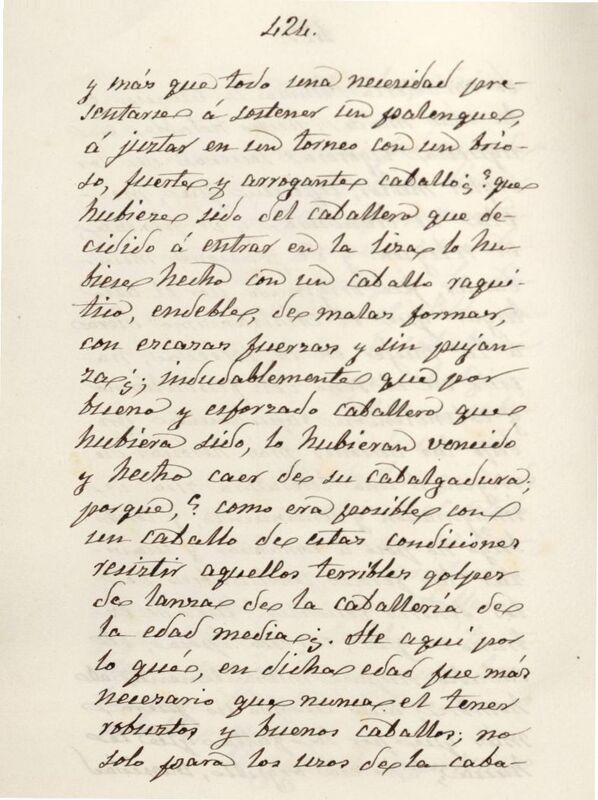 424.
y más que todo una necesidad pre-
sentarse á sostener un palenque,
á justar en un torneo con un brio-
so, fuerte y arrogante caballo; ? que
hubiese sido del caballero que de-
cidido á entrar en la liza lo hu-
biese hecho con un caballo raquí-
tico, endeble, de malas formas,
con escasas fuerzas y sin pujan-
za¿; indudablemente que por
bueno y esforzado caballero que
hubiera sido, lo hubieran vencido
y hecho caer de su cabalgadura;
porque, ? como era posible con
un caballo de estas condiciones
resistir aquellos terribles golpes
de lanza de la caballería de
la edad media¿. He aquí por
lo qué, en dicha edad fue más
necesario que nunca el tener
robustos y buenos caballos; no
solo para los usos de la caba-